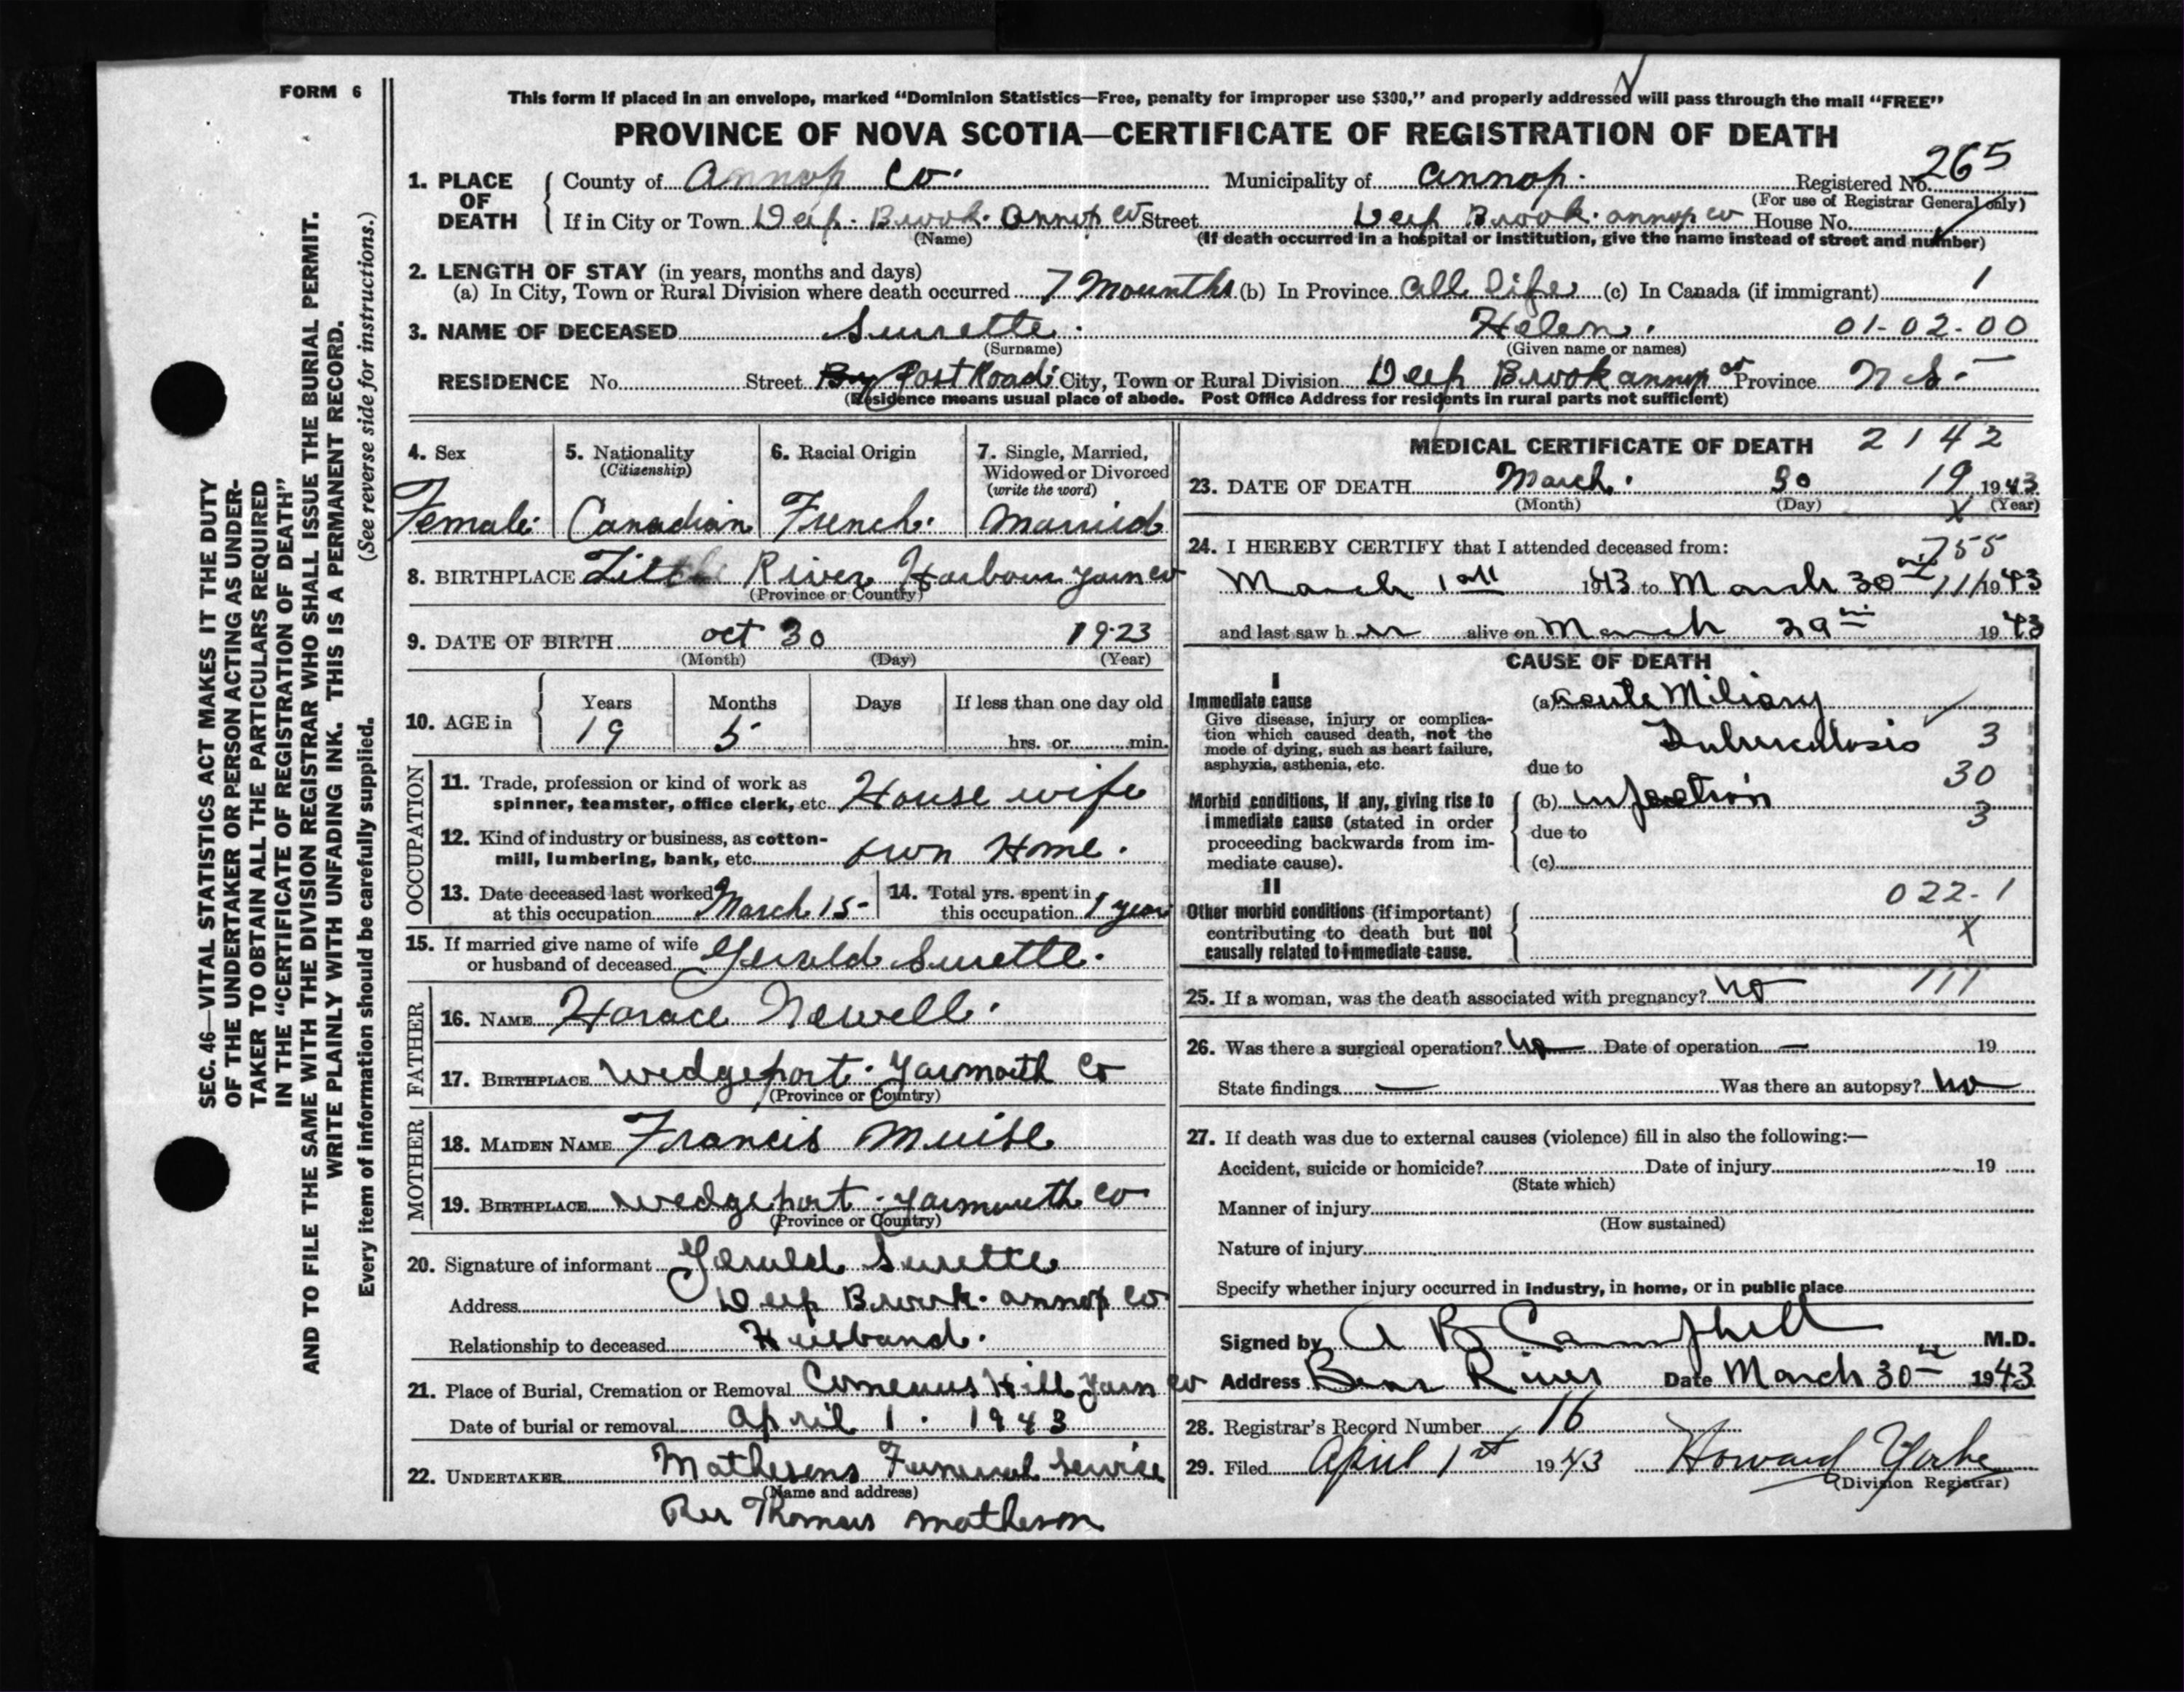 FORM 6
This form if placed in an envelope, marked “Dominion Statistics—Free, penalty for improper use $300,” and properly addressed will pass through the mail “FREE”
PROVINCE OF NOVA SCOTIA—CERTIFICATE OF REGISTRATION OF DEATH
265
1. PLACE OF DEATH County of Annop Co. Municipality of Annop. Registered No.
(For use of Registrar General only)
If in City or Town Deep Brook. Annop Co Street Deep Brook. annop co House No.
(Name) (If death occurred in a hospital or institution, give the name instead of street and number)
2. LENGTH OF STAY (in years, months and days)
(a) In City, Town or Rural Division where death occurred 7 Mounths (b) In Province all life (c) In Canada (if immigrant) 1
3. NAME OF DECEASED Surette. Helen. 01-02-00
(Surname) (Given name or names)
RESIDENCE No. Street Post Road City, Town or Rural Division Deep Brook annop co Province N S.
(Residence means usual place of abode. Post Office Address for residents in rural parts not sufficient)
4. Sex 5. Nationality (Citizenship) 6. Racial Origin 7. Single, Married, Widowed or Divorced (write the word)
Female. Canadian French. Married
8. BIRTHPLACE Little River Harbour Yarm co
(Province or Country)
9. DATE OF BIRTH oct 30 1923
(Month) (Day) (Year)
10. AGE in Years Months Days If less than one day old
19 5 hrs. or min.
OCCUPATION
11. Trade, profession or kind of work as spinner, teamster, office clerk, etc. House wife
12. Kind of industry or business, as cotton-mill, lumbering, bank, etc. own Home.
13. Date deceased last worked at this occupation March 15- 14. Total yrs. spent in this occupation 1 year
15. If married give name of wife or husband of deceased Gerald Surette.
FATHER
16. NAME Horace Newell.
17. BIRTHPLACE Wedgeport. Yarmouth Co
(Province or Country)
MOTHER
18. MAIDEN NAME Francis Muise
19. BIRTHPLACE Wedgeport. Yarmouth Co
(Province or Country)
20. Signature of informant Gerald Surette
Address Deep Brook. annop Co
Relationship to deceased Husband.
21. Place of Burial, Cremation or Removal Comeaus Hill Yarm Co
Date of burial or removal April 1. 1943
22. UNDERTAKER Mathesons Funeral Service
(Name and address)
Per Thomas Matheson
MEDICAL CERTIFICATE OF DEATH 2142
23. DATE OF DEATH March. 30 19 1943
(Month) (Day) (Year)
X
24. I HEREBY CERTIFY that I attended deceased from: 755
March 1st 1943 to March 30th 111 1943
and last saw her alive on March 29th 1943
CAUSE OF DEATH
I
Immediate cause
Give disease, injury or complication which caused death, not the mode of dying, such as heart failure, asphyxia, asthenia, etc.
(a) Acute Miliary
Tuberculosis 3
due to 30
Morbid conditions, if any, giving rise to immediate cause (stated in order proceeding backwards from immediate cause).
(b) infection 3
due to
(c)
II 022-1
Other morbid conditions (if important) contributing to death but not causally related to immediate cause. X
25. If a woman, was the death associated with pregnancy? no 111
26. Was there a surgical operation? no Date of operation — 19
State findings — Was there an autopsy? no
27. If death was due to external causes (violence) fill in also the following:—
Accident, suicide or homicide? Date of injury 19
(State which)
Manner of injury
(How sustained)
Nature of injury
Specify whether injury occurred in industry, in home, or in public place
Signed by A B Campbell M.D.
Address Bear River Date March 30th 1943
28. Registrar's Record Number 16
29. Filed April 1st 1943 Howard Yorke
(Division Registrar)
SEC. 46—VITAL STATISTICS ACT MAKES IT THE DUTY
OF THE UNDERTAKER OR PERSON ACTING AS UNDER-
TAKER TO OBTAIN ALL THE PARTICULARS REQUIRED
IN THE “CERTIFICATE OF REGISTRATION OF DEATH”
AND TO FILE THE SAME WITH THE DIVISION REGISTRAR WHO SHALL ISSUE THE BURIAL PERMIT.
WRITE PLAINLY WITH UNFADING INK. THIS IS A PERMANENT RECORD.
Every item of information should be carefully supplied. (See reverse side for instructions.)